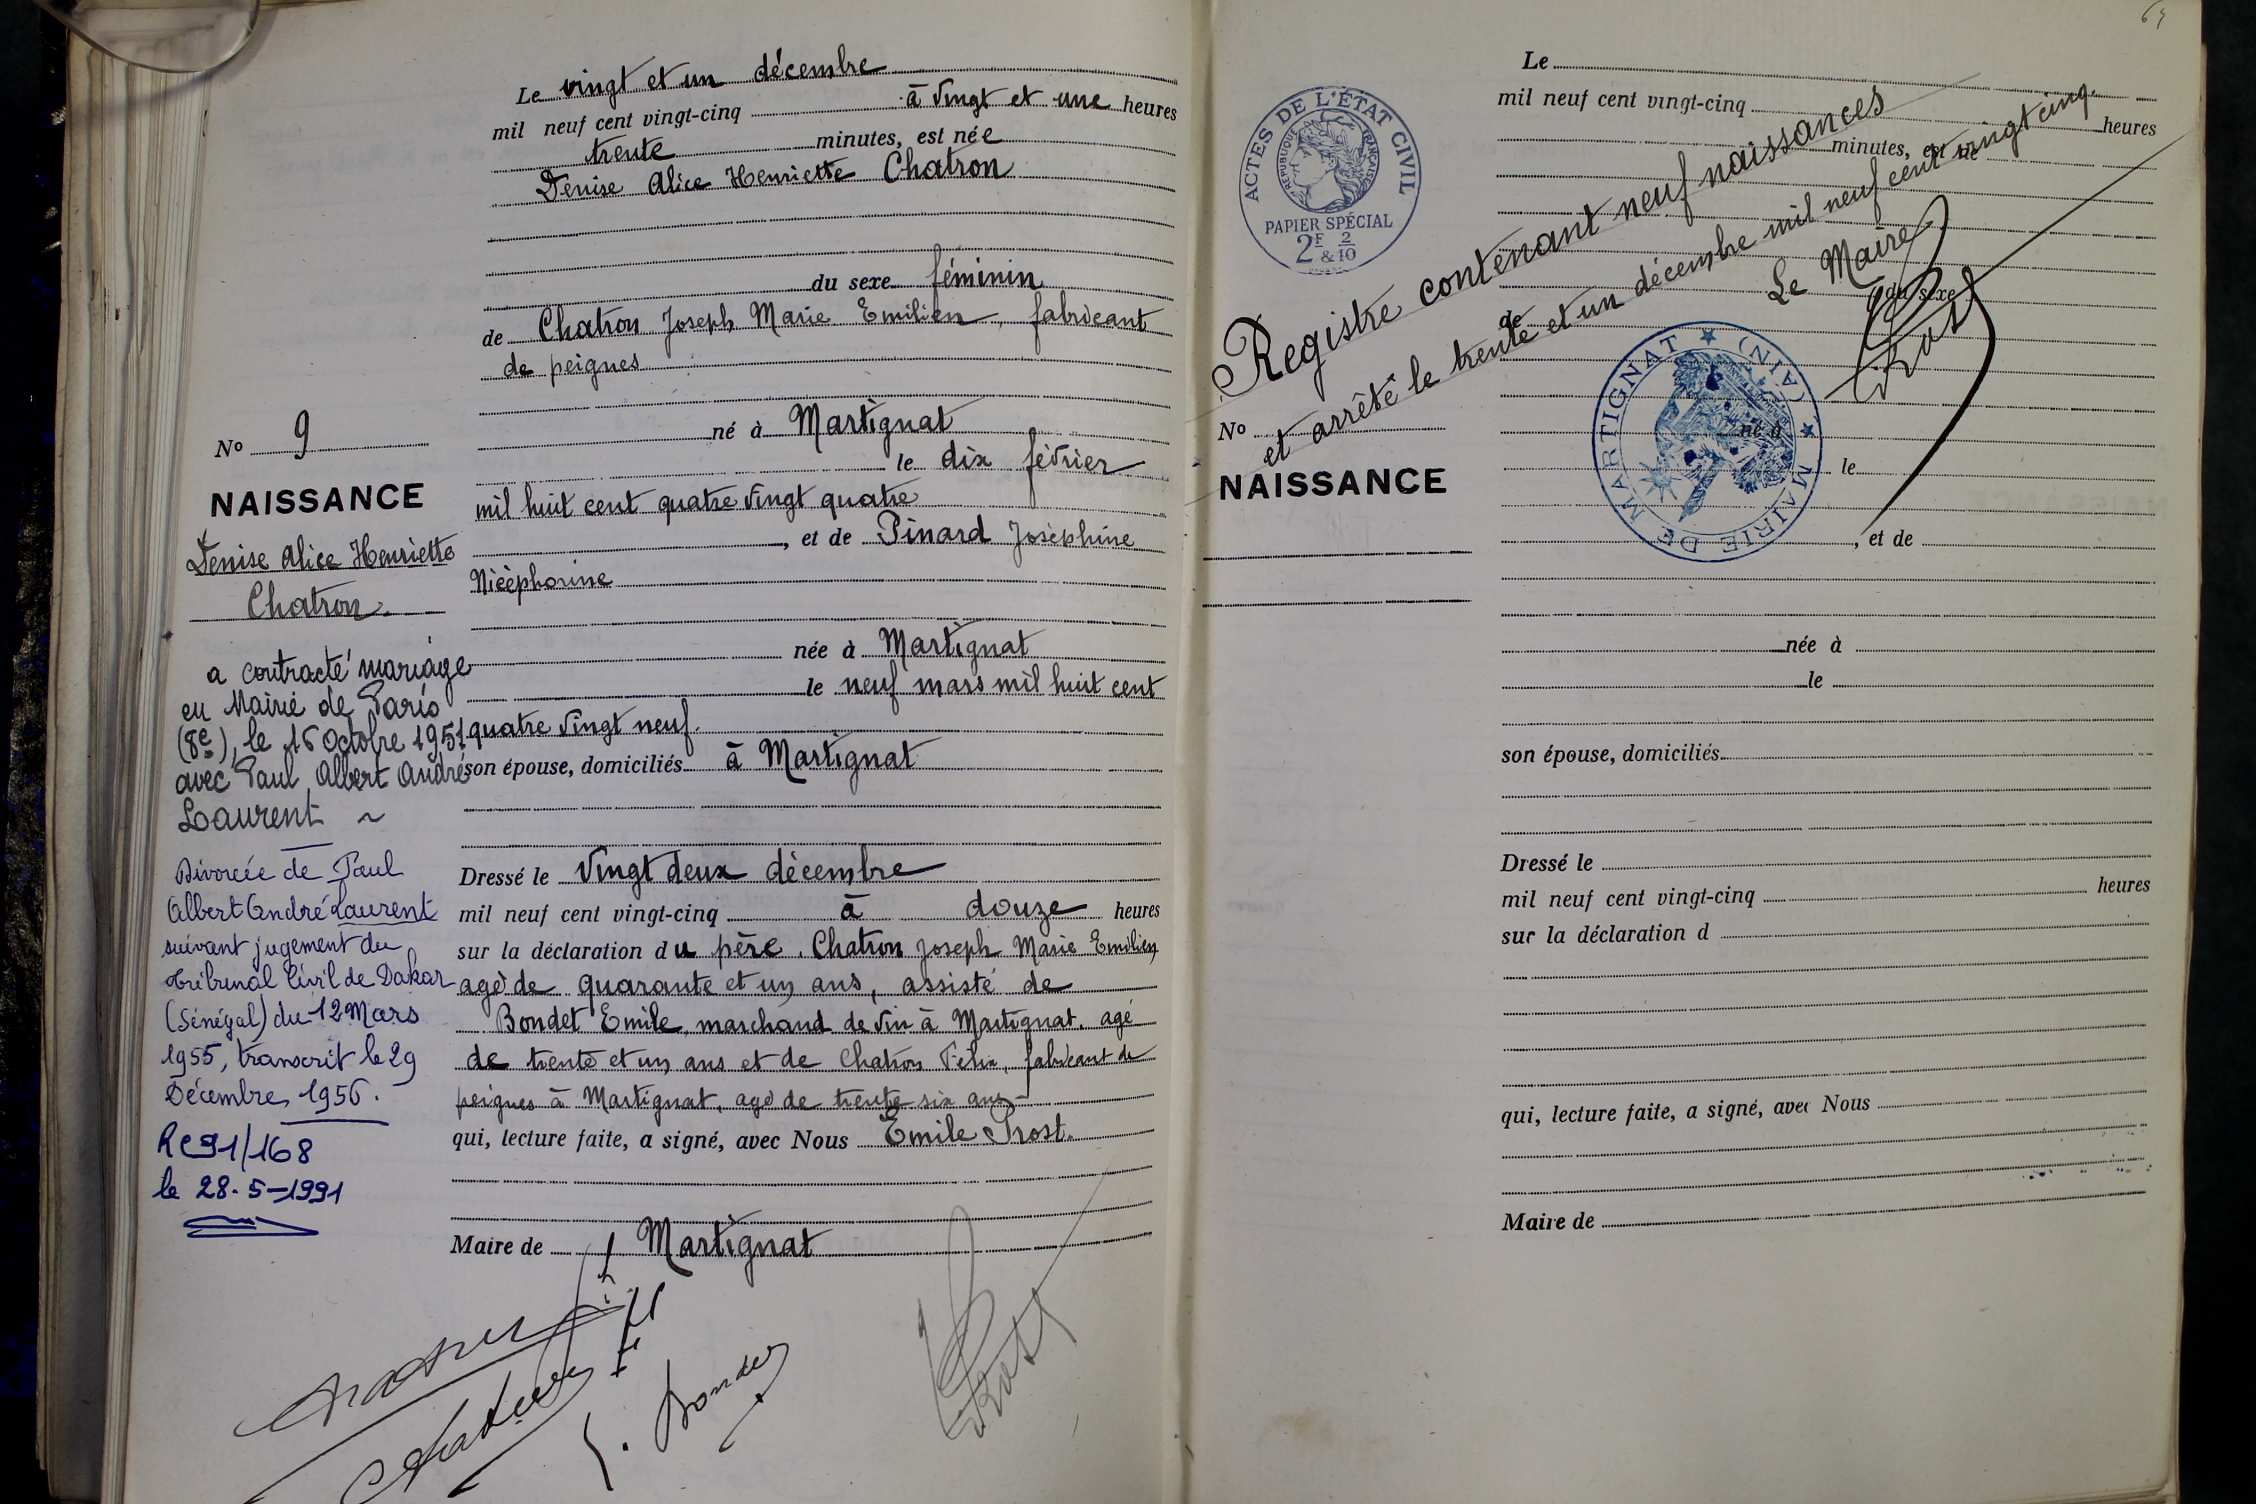 Le vingt et un décembre
mil neuf cent vingt-cinq à vingt et une heures
trente minutes, est née
Denise Alice Henriette Chatron
du sexe féminin
de Chatron Joseph Marie Emilien, fabricant
de peignes
né à Martignat
le dix février
mil huit cent quatre vingt quatre
, et de Pinard Josèphine
Nicéphorine
née à Martignat
le neuf mars mil huit cent
quatre vingt neuf.
son épouse, domiciliés à Martignat
Dressé le vingt deux décembre
mil neuf cent vingt-cinq à douze heures
sur la déclaration du père. Chatron Joseph Marie Emilien,
agé de quarante et un ans, assisté de
Bondet Emile, marchand de vin à Martignat, agé
de trente et un ans et de Chatron Félix, fabricant de
peignes à Martignat, agé de trente six ans
qui, lecture faite, a signé, avec Nous Emile Prost.
Maire de Martignat
No 9
NAISSANCE
Denise Alice Henriette
Chatron.
a contracté mariage
en Mairie de Paris
(8e), le 16 octobre 1951
avec Paul Albert André
Laurent ~
Divorcée de Paul
Albert André Laurent
suivant jugement du
tribunal Civil de Dakar
(Sénégal) du 12 Mars
1955, transcrit le 29
Décembre 1956.
RC 91/168
le 28-5-1991
Prost
64
ACTES DE L'ÉTAT CIVIL
RÉPUBLIQUE FRANÇAISE
PAPIER SPÉCIAL
2F & 2/10
Registre contenant neuf naissances
et arrêté le trente et un décembre mil neuf cent vingt cinq.
Le Maire
Prost
MAIRIE DE MARTIGNAT ★ (AIN) ★
Le
mil neuf cent vingt-cinq
heures
minutes, est né
du sexe
de
né à
le
, et de
née à
le
son épouse, domiciliés
Dressé le
mil neuf cent vingt-cinq heures
sur la déclaration d
qui, lecture faite, a signé, avec Nous
Maire de
No
NAISSANCE